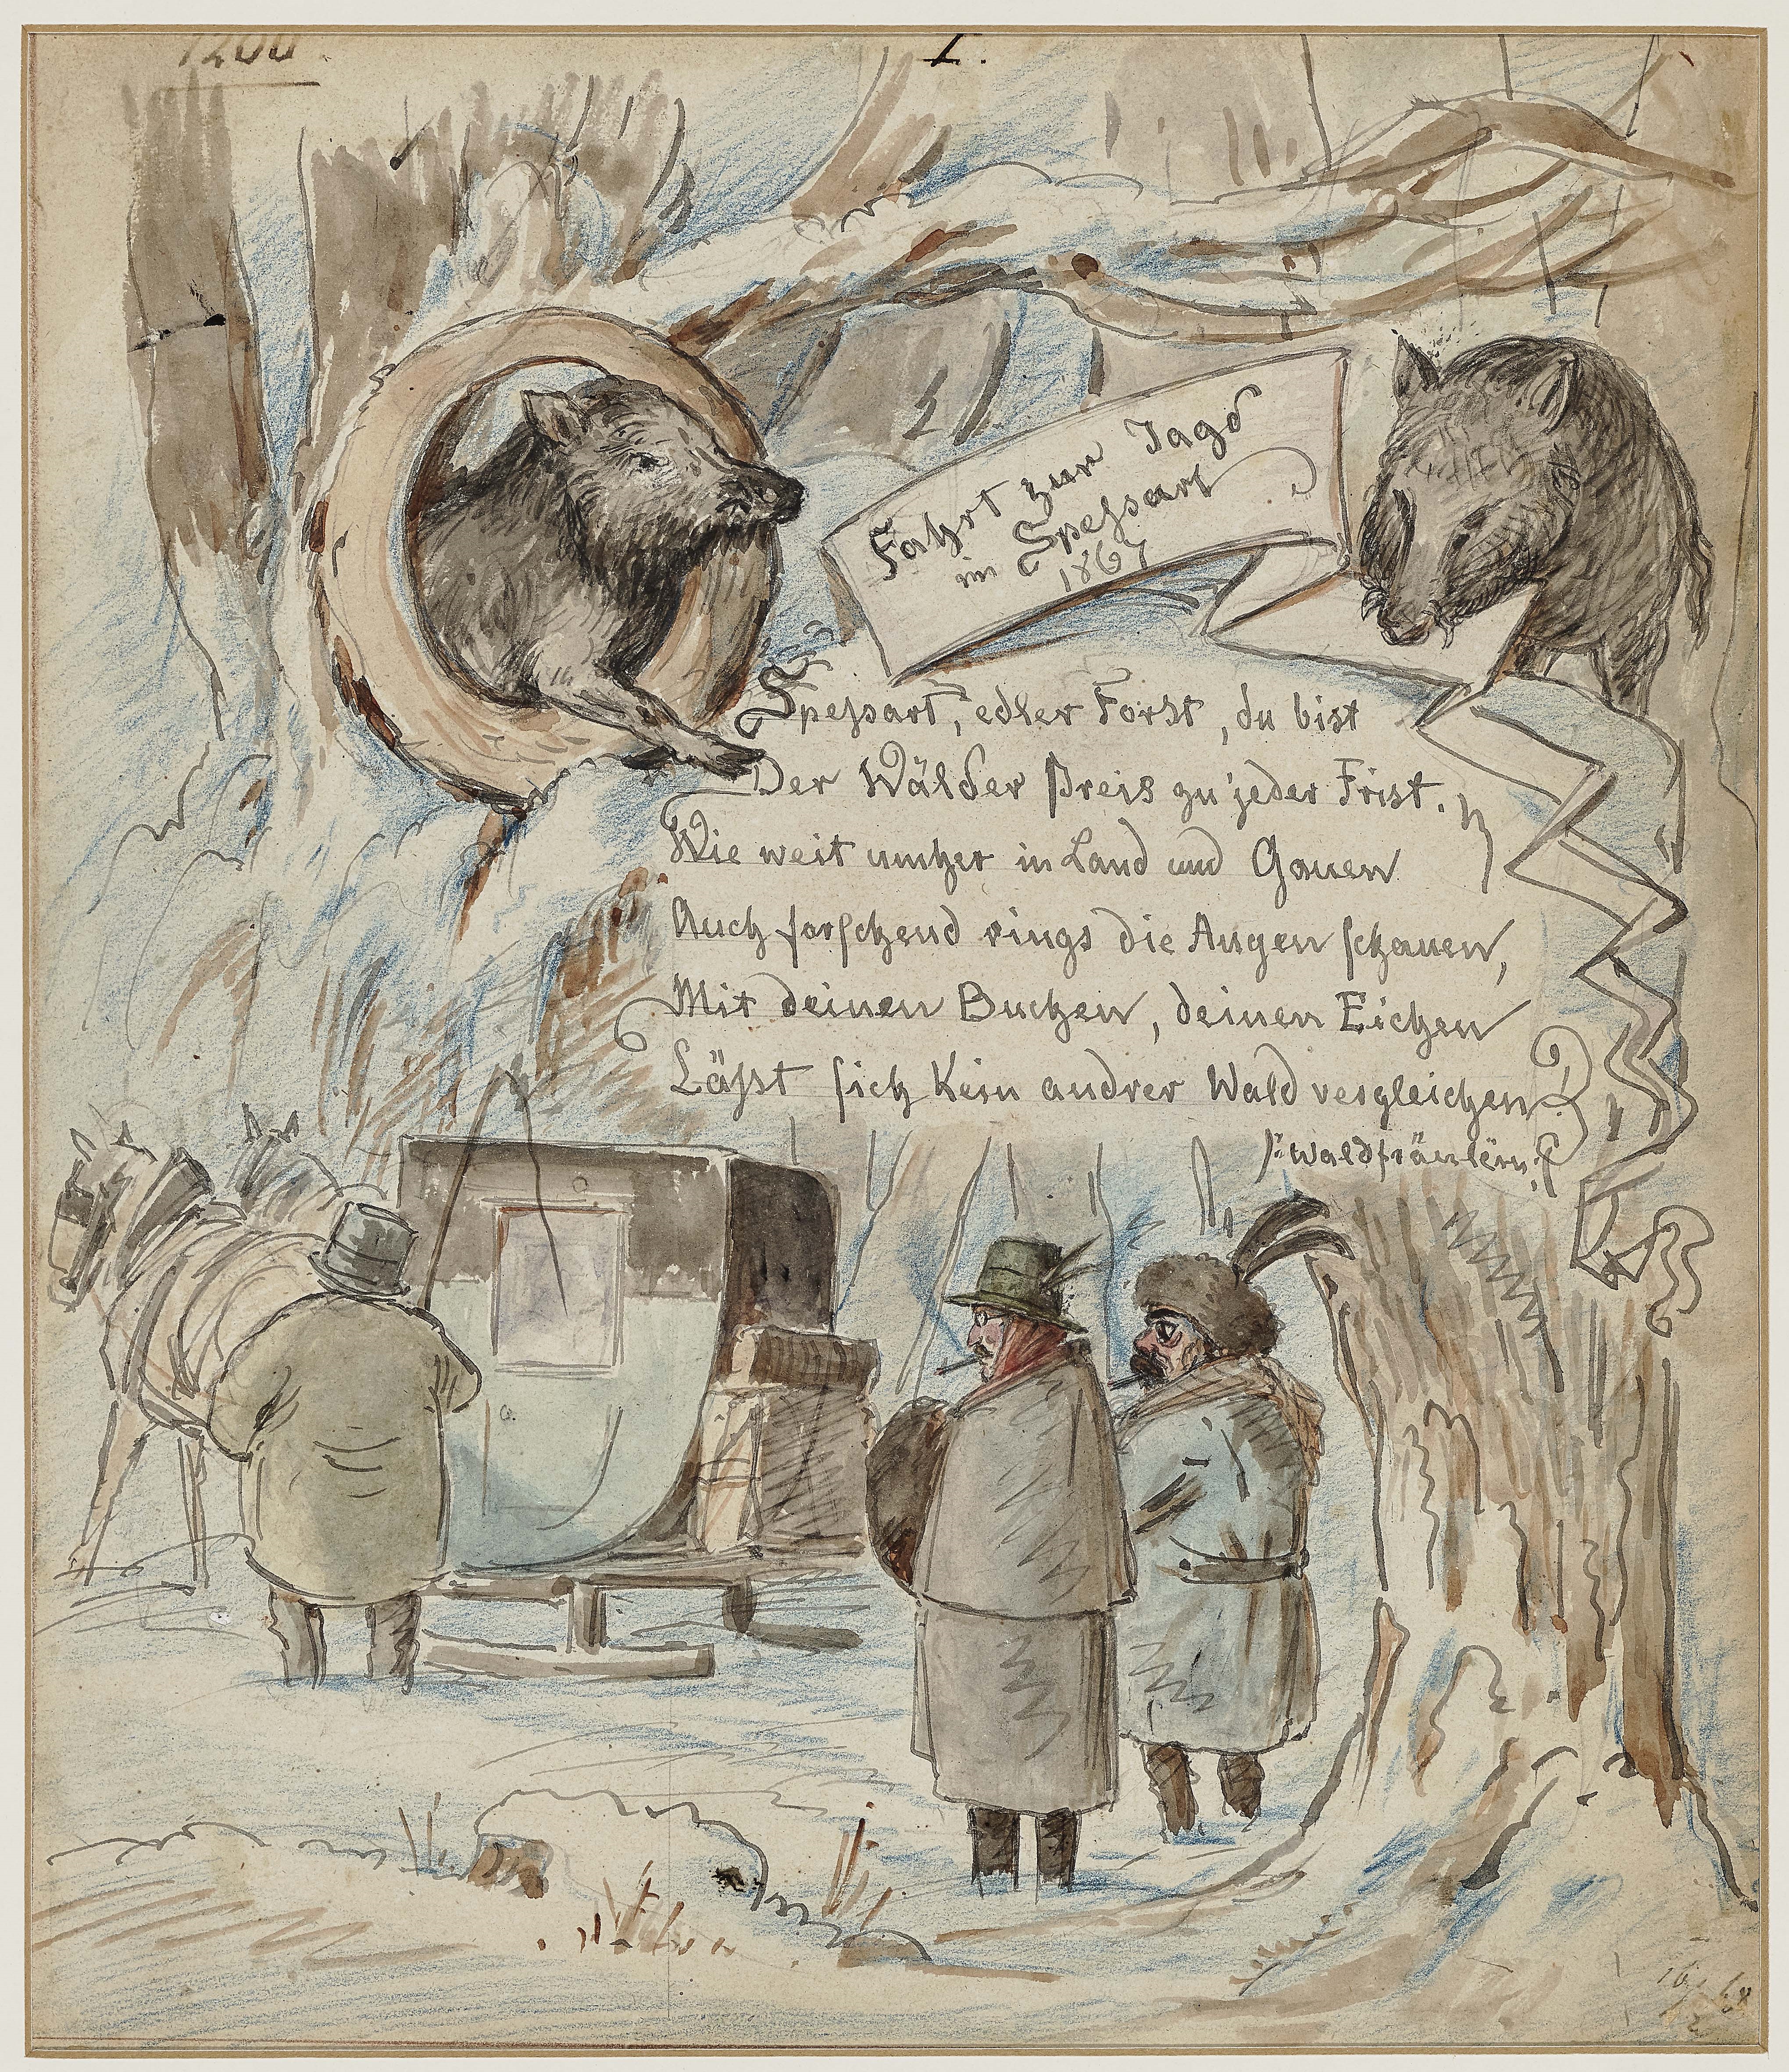 1200
I.
Fahrt zur Jagd
im Speſsart
1867
Speſsart, edler Forst, du bist
Der Wälder Preis zu jeder Frist.
Wie weit umher in Land und Gauen
Auch forſchend rings die Augen ſchauen,
Mit deinen Buchen, deinen Eichen
Läſst ſich kein andrer Wald vergleichen!
/: Waldfräulein :/